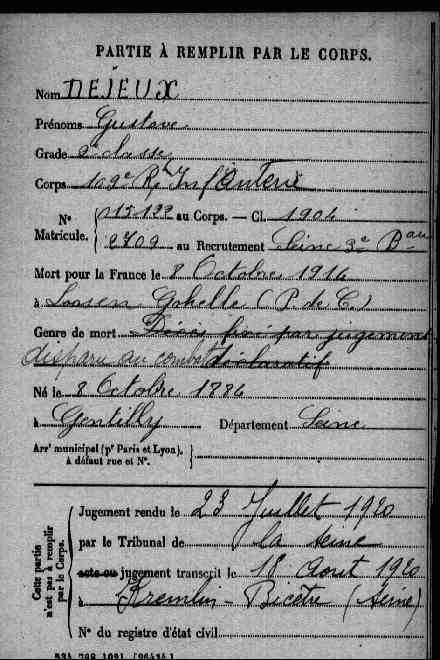 PARTIE À REMPLIR PAR LE CORPS.
Nom DEJEUX
Prénoms Gustave
Grade 2e classe
Corps 109e Rt Infanterie
No Matricule. 015122 au Corps. — Cl. 1904
2709 au Recrutement Seine 3e Bau
Mort pour la France le 8 Octobre 1914
à Loosen Gohelle (P. de C.)
Genre de mort Décès fixé par jugement
disparu au combat déclaratif
Né le 8 Octobre 1884
à Gentilly Département Seine
Arrt municipal (pr Paris et Lyon),
à défaut rue et No.
Cette partie
n'est pas à remplir
par le Corps.
Jugement rendu le 23 Juillet 1920
par le Tribunal de la Seine
acte ou jugement transcrit le 18 Aout 1920
à Kremlin-Bicêtre (Seine)
No du registre d'état civil